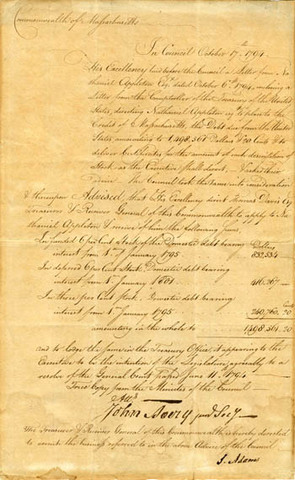 Commonwealth of Massachusetts
In Council October 17th 1794.
His Excellency laid before the Council a Letter from Na
thaniel Appleton Esqr dated October 6th 1794, enclosing a
Letter from the Comptroller of the Treasury of the United
States, directing Nathaniel Appleton Esq to pass to the
Credit of Massachusetts, the Debt due from the United
States amounting to 1,498,561 Dollars & 20 Cents & to
deliver Certificates for the amount in such description of
Stock as the Council shall direct
The Council took the same into consideration
& thereupon Advised, that His Excellency direct Thomas Davis Esq
Treasurer & Receiver General of this Commonwealth to apply to Na
thaniel Appleton & receive of him the following sums
In funded 6 per Cent Stock Domestic debt bearing Dollars
interest from 1st January 1795 832,534
In deferred 6 per Cent Stock, Domestic debt bearing
interest from 1st January 1801 416,267
In three per Cent Stock, Domestic debt bearing
interest from 1st January 1795 249,760 20
amounting in the whole to 1,498,561. 20
and to Lodge the same in the Treasury Office, it appearing to the
Council to be the intention of the Legislature, agreeably to a
resolve of the General Court passed June 1794
True Copy from the Minutes of the Council
Attt
John Avery junr Secy
The Treasurer & Receiver General of this Commonwealth is hereby directed
to execute the business referred to in the above Advice of the Council
S. Adams